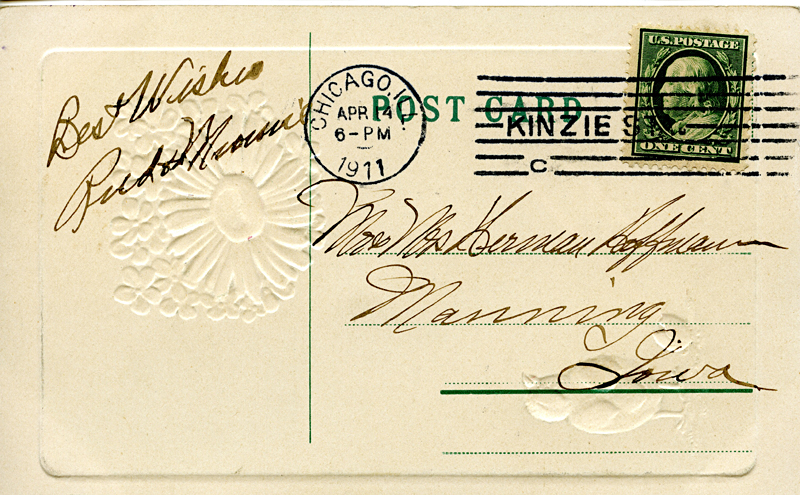 Best Wishes
Rud & Minnie
CHICAGO, ILL.
APR 14
6-PM
1911
POST CARD
KINZIE ST.
C
U.S. POSTAGE
ONE CENT
Mr & Mrs Herman Hoffmann
Manning
Iowa